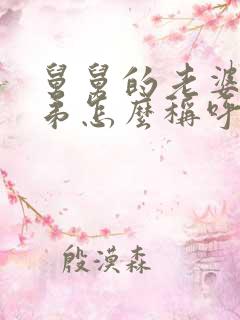 舅舅的老婆
弟怎麼稱呼
殷漠森